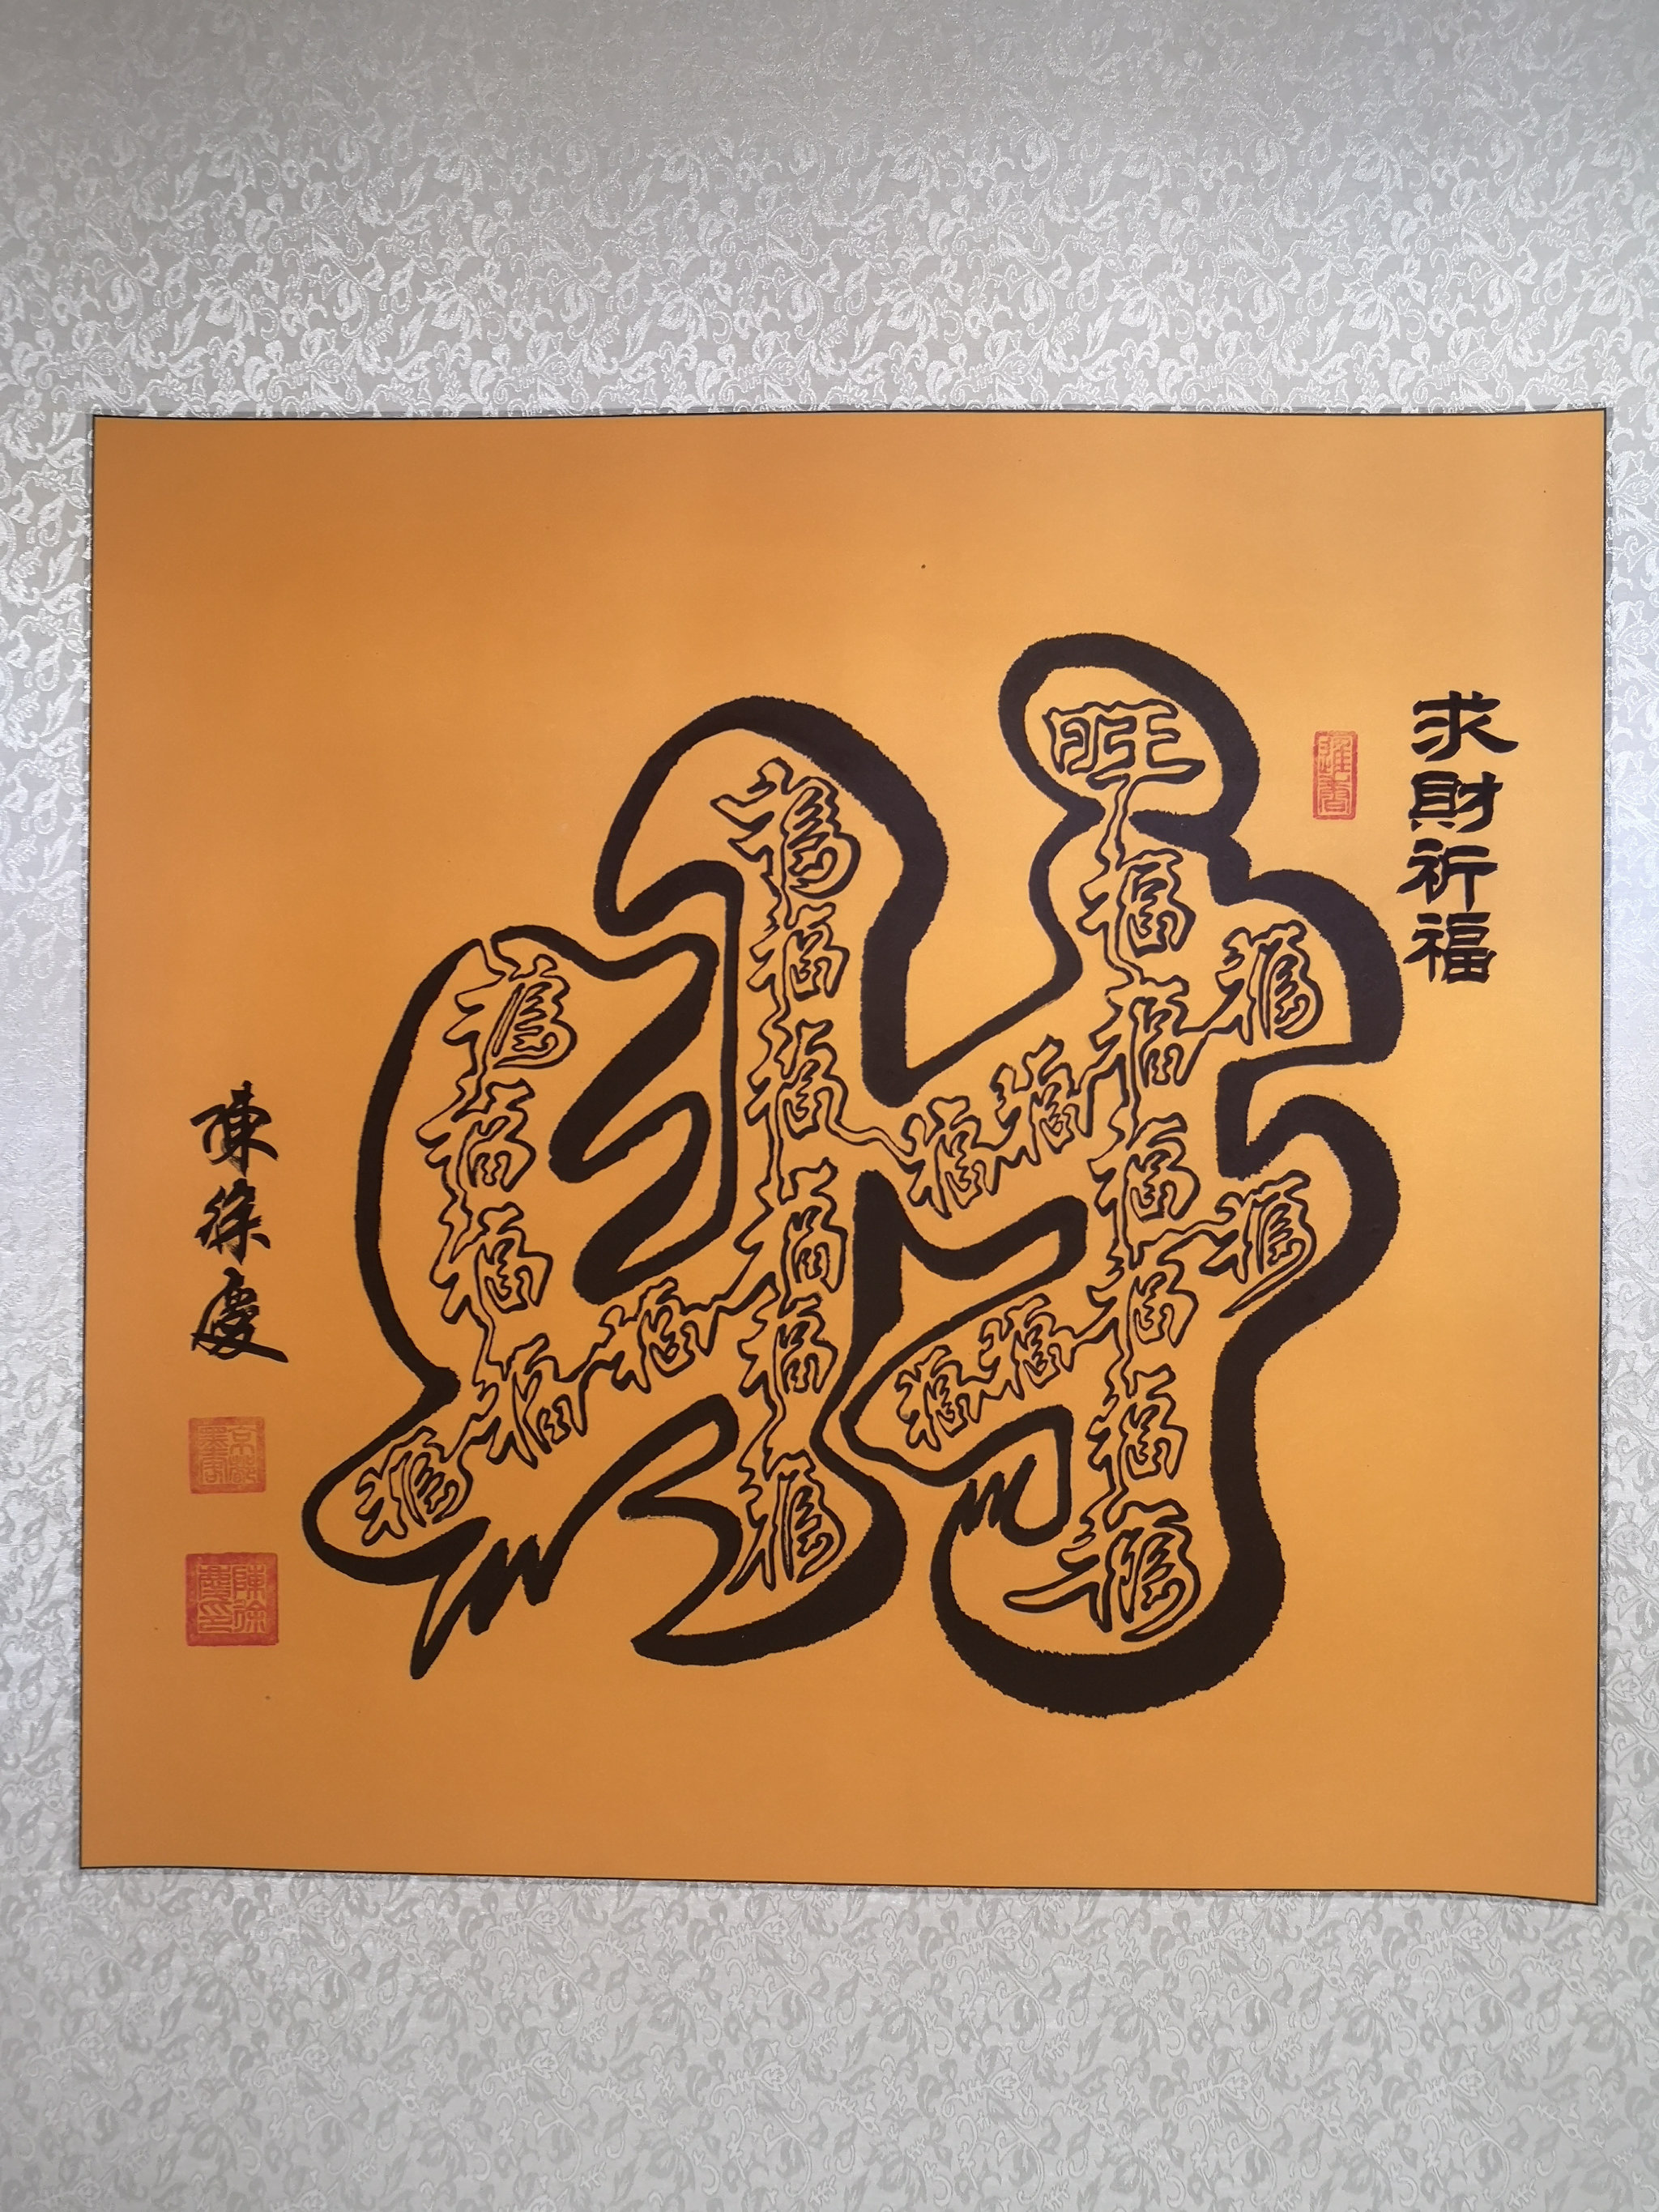 求財祈福
福福
旺福福福福福福
福福福福
福福福福福福
福
福福福福
福
陳徐慶
陳徐慶印